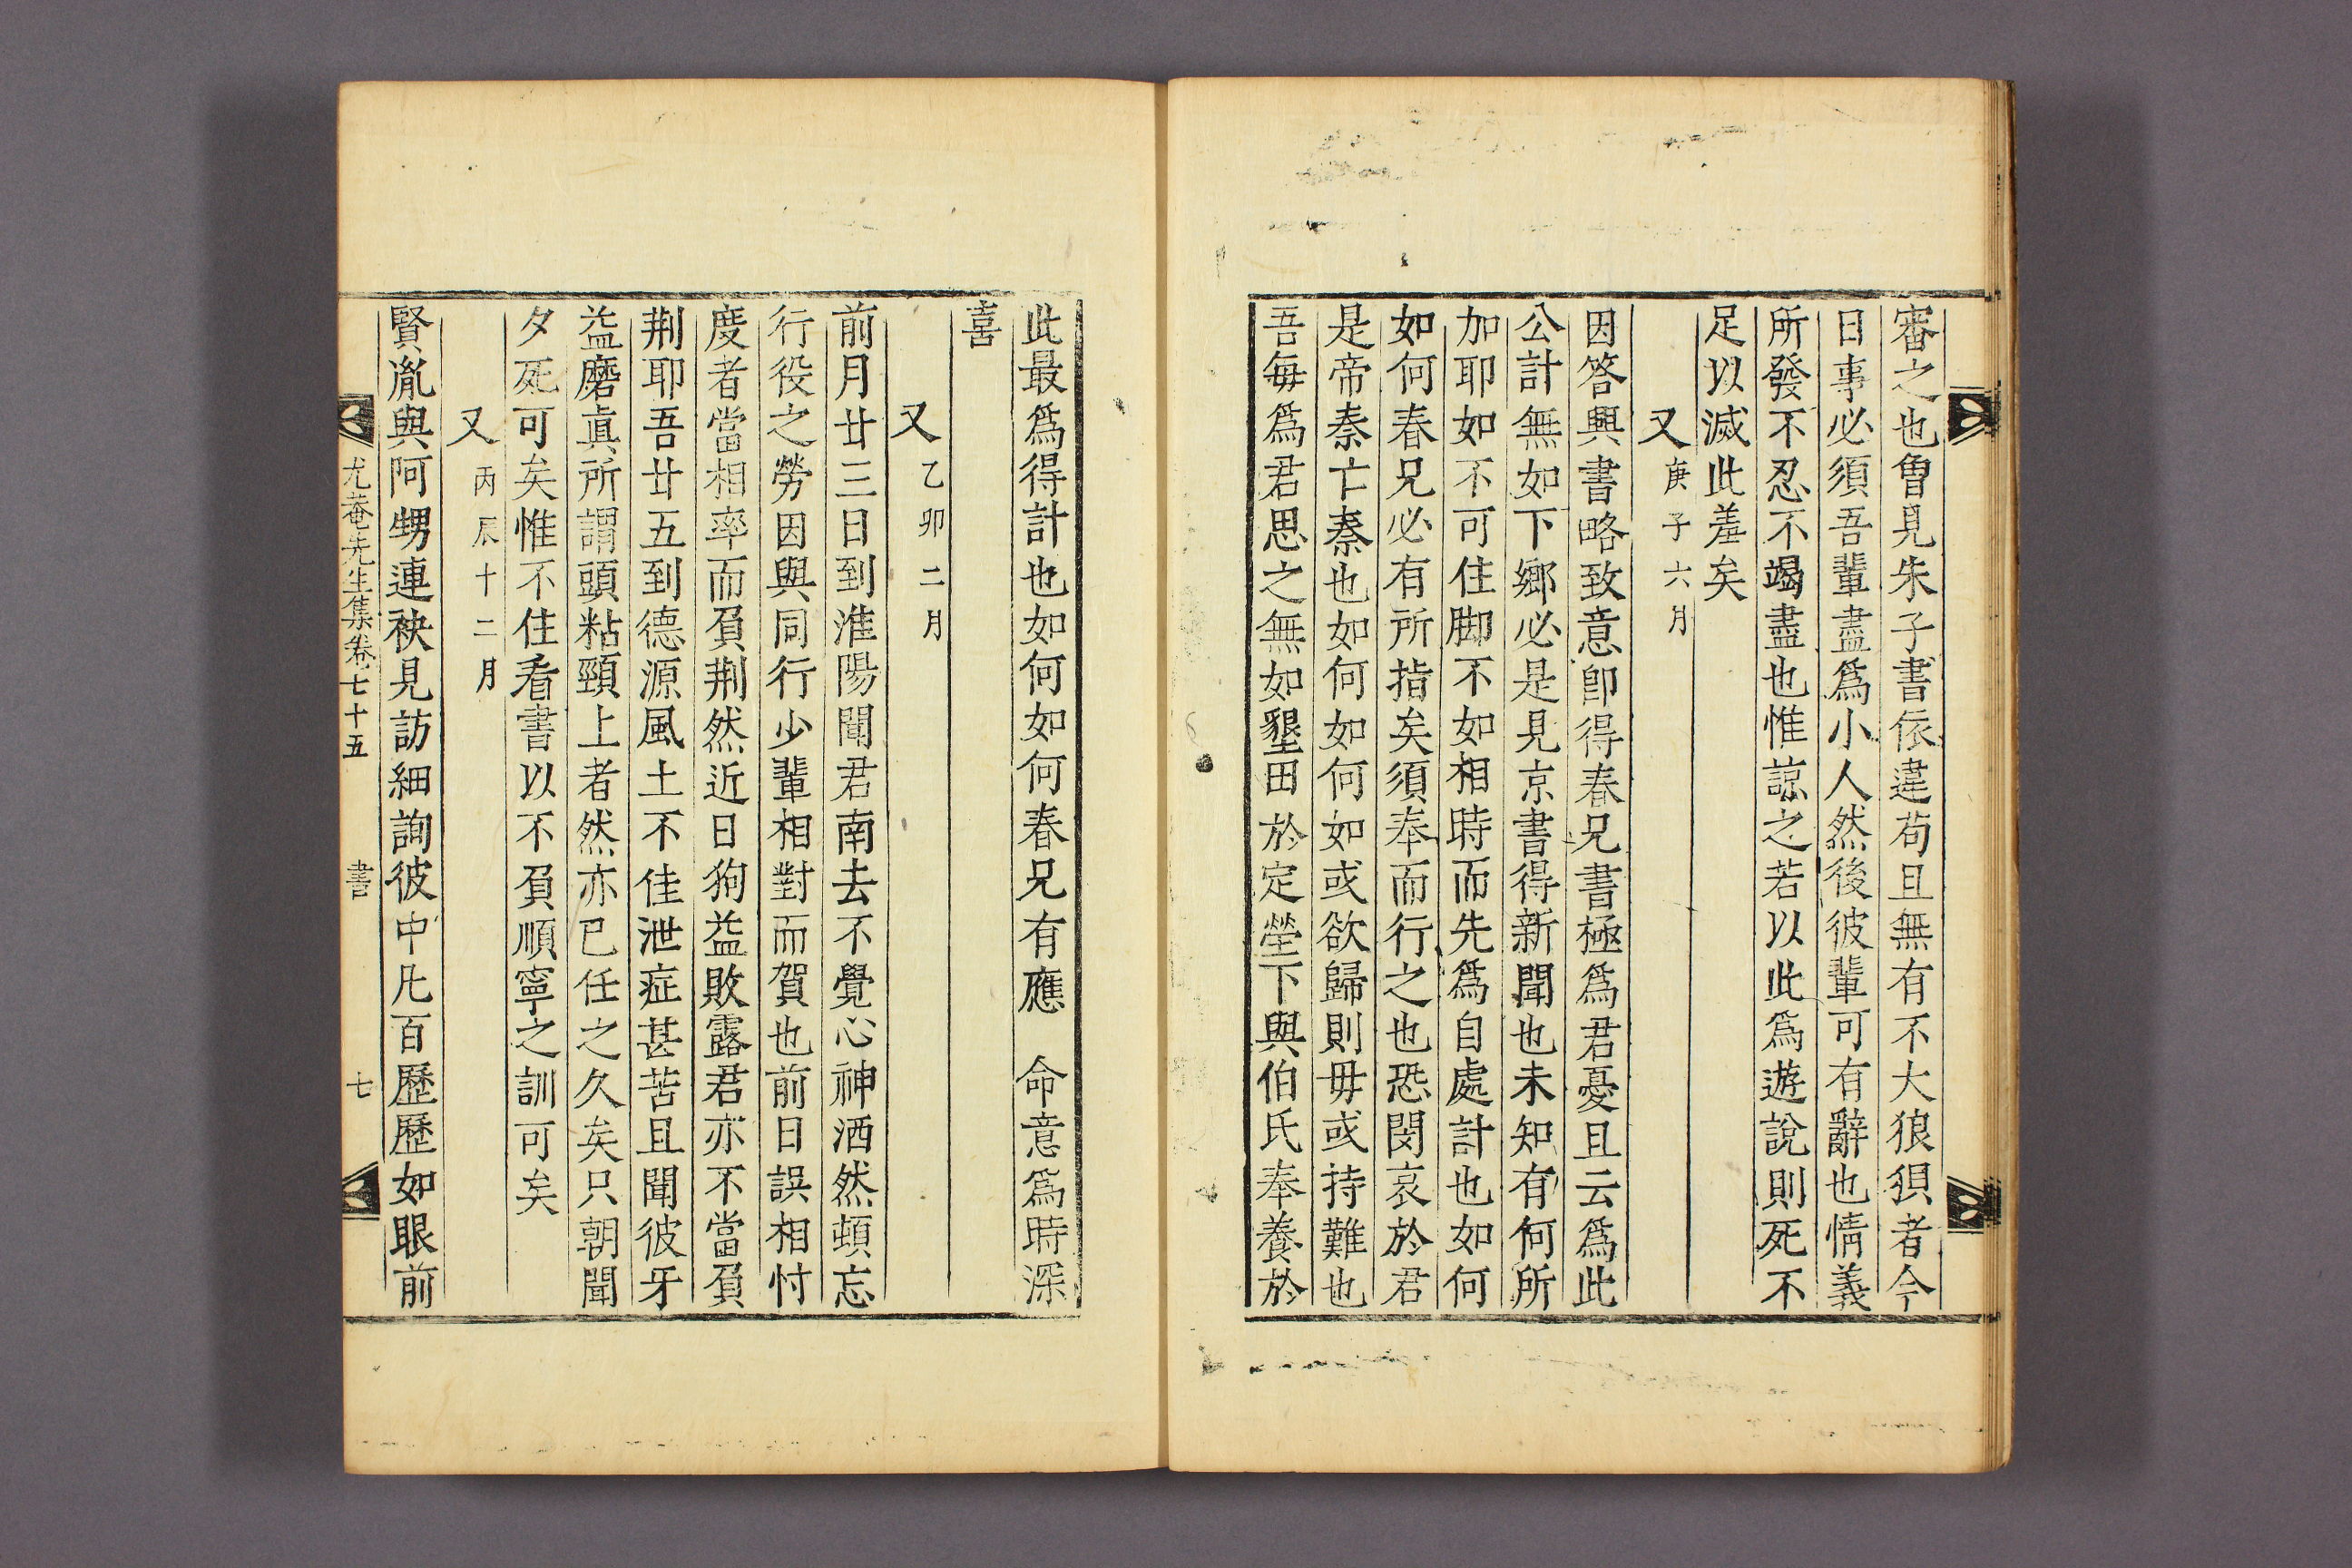 審之也曾見朱子書依違苟且無有不大狼狽者今
日事必須吾輩盡爲小人然後彼輩可有辭也情義
所發不忍不竭盡也惟諒之若以此爲遊說則死不
足以滅此羞矣
又庚子六月
因答興書略致意卽得春兄書極爲君憂且云爲此
公計無如下鄕必是見京書得新聞也未知有何所
加耶如不可住脚不如相時而先爲自處計也如何
如何春兄必有所指矣須奉而行之也恐閔哀於君
是帝秦亡秦也如何如何如或欲歸則毋或持難也
吾每爲君思之無如墾田於定塋下與伯氏奉養於
此最爲得計也如何如何春兄有應 命意爲時深
喜
又乙卯二月
前月廿三日到淮陽聞君南去不覺心神洒然頓忘
行役之勞因與同行少輩相對而賀也前日誤相忖
度者當相率而負荆然近日狗益敗露君亦不當負
荆耶吾廿五到德源風土不佳泄症甚苦且聞彼牙
益磨眞所謂頭粘頸上者然亦已任之久矣只朝聞
夕死可矣惟不住看書以不負順寧之訓可矣
又丙辰十二月
賢胤與阿甥連袂見訪細詢彼中凡百歷歷如眼前
尤菴先生集卷七十五 書 七